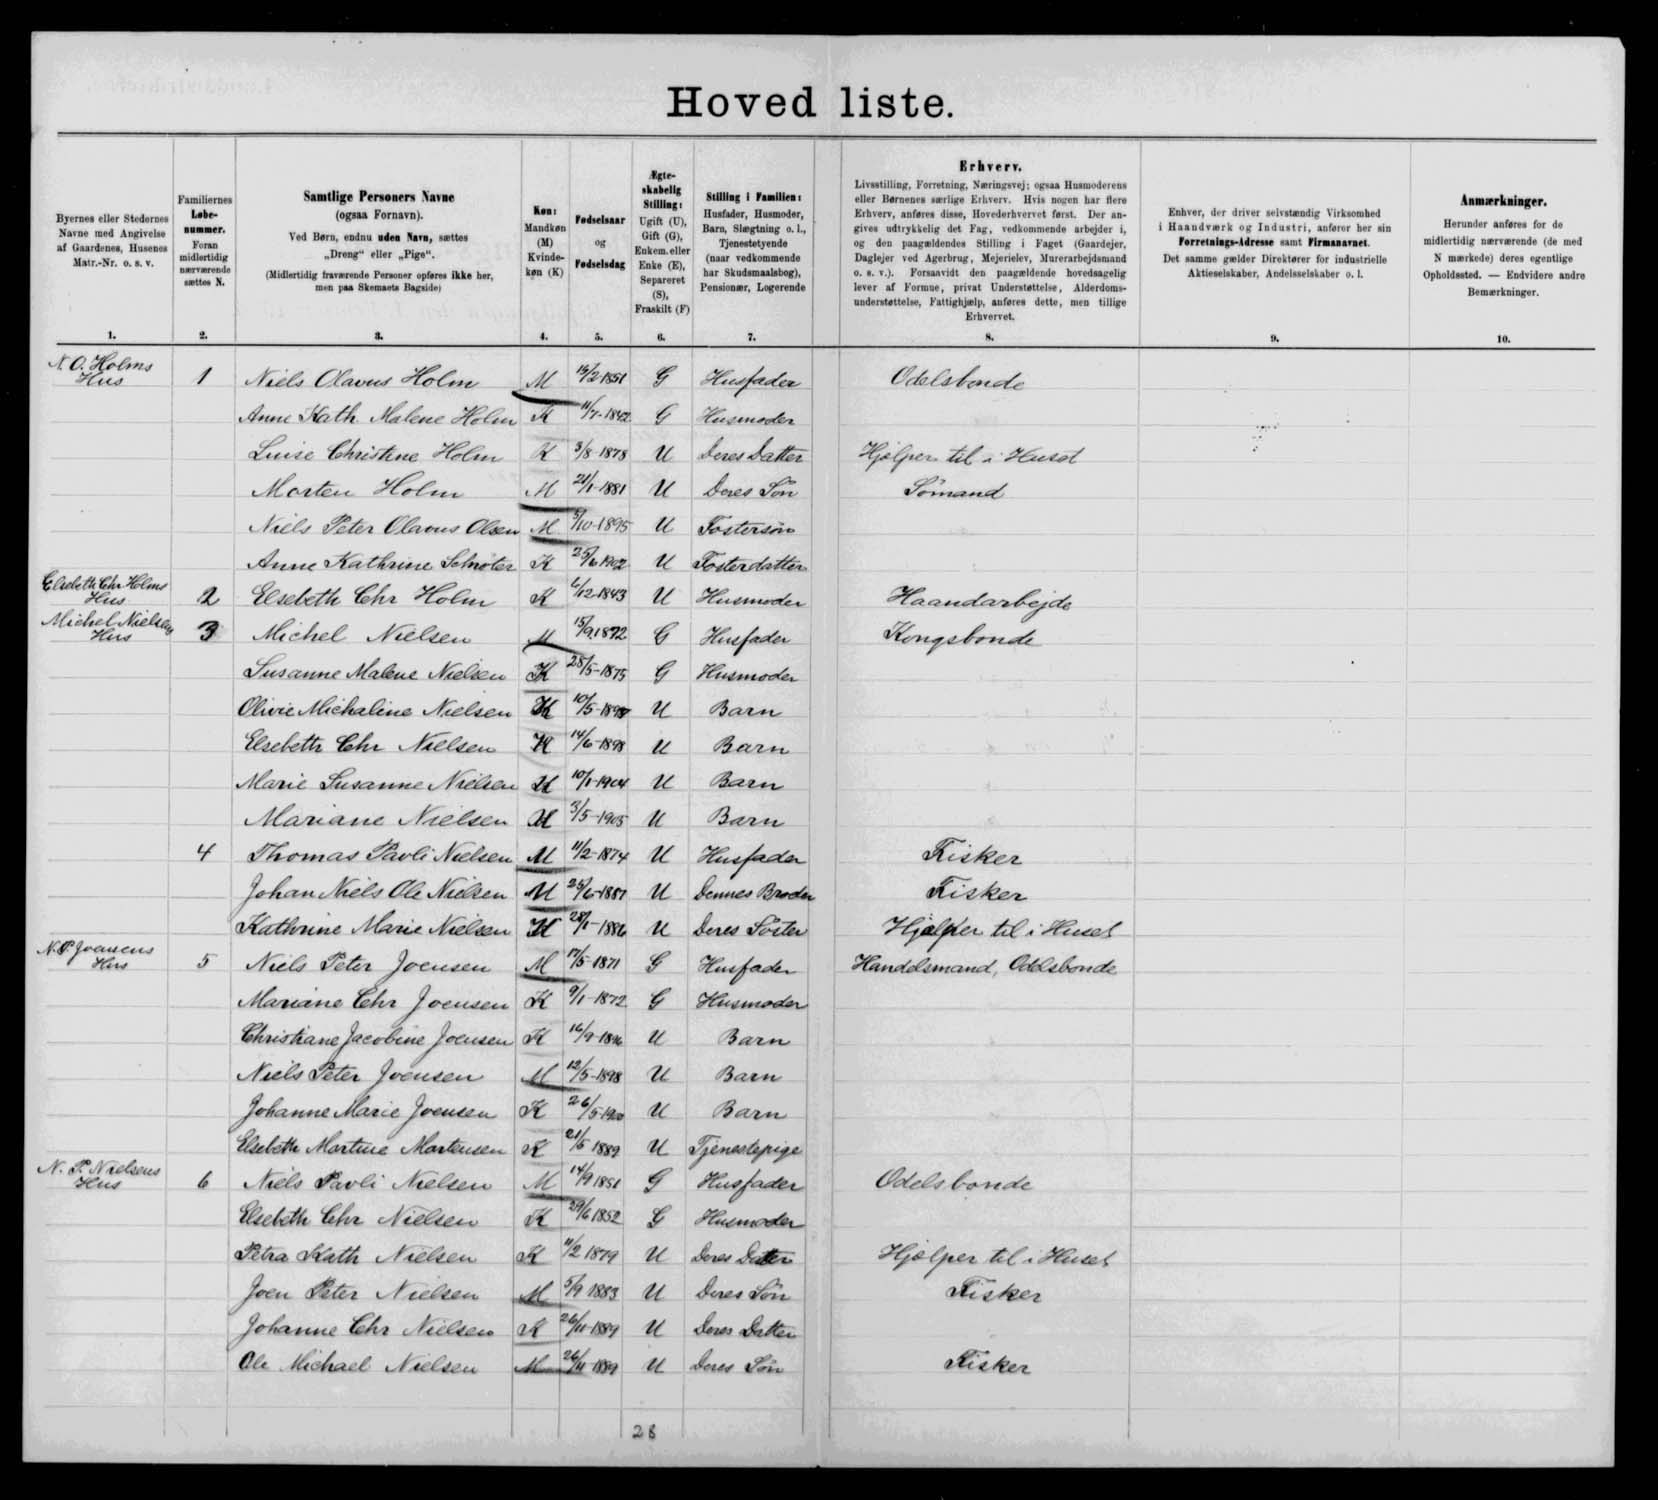 Hoved liste.
Byernes eller Stedernes Navne med Angivelse af Gaardenes, Husenes Matr.-Nr. o. s. v.
Familiernes Løbenummer. Foran midlertidig nærværende sættes N.
Samtlige Personers Navne
(ogsaa Fornavn).
Ved Børn, endnu uden Navn, sættes
„Dreng“ eller „Pige“.
(Midlertidig fraværende Personer opføres ikke her,
men paa Skemaets Bagside)
Køn:
Mandkøn
(M)
Kvinde-
køn (K)
Fødselsaar
og
Fødselsdag
Ægte-
skabelig
Stilling:
Ugift (U),
Gift (G),
Enkem. eller
Enke (E),
Separeret
(S),
Fraskilt (F)
Stilling i Familien:
Husfader, Husmoder,
Barn, Slægtning o. l.,
Tjenestetyende
(naar vedkommende
har Skudsmaalsbog),
Pensionær, Logerende
Erhverv.
Livsstilling, Forretning, Næringsvej; ogsaa Husmoderens
eller Børnenes særlige Erhverv. Hvis nogen har flere
Erhverv, anføres disse, Hovederhvervet først. Der an-
gives udtrykkelig det Fag, vedkommende arbejder i,
og den paagældendes Stilling i Faget (Gaardejer,
Daglejer ved Agerbrug, Mejerielev, Murerarbejdsmand
o. s. v.). Forsaavidt den paagældende hovedsagelig
lever af Formue, privat Understøttelse, Alderdoms-
understøttelse, Fattighjælp, anføres dette, men tillige
Erhvervet.
Enhver, der driver selvstændig Virksomhed
i Haandværk og Industri, anfører her sin
Forretnings-Adresse samt Firmanavnet.
Det samme gælder Direktører for industrielle
Aktieselskaber, Andelsselskaber o. l.
Anmærkninger.
Herunder anføres for de
midlertidig nærværende (de med
N mærkede) deres egentlige
Opholdssted. — Endvidere andre
Bemærkninger.
1. 2. 3. 4. 5. 6. 7. 8. 9. 10.
N. O. Holms Hus 1 Niels Olavus Holm M 15/2-1851 G Husfader Odelsbonde
Anne Kath. Malene Holm K 11/7-1842 G Husmoder
Luise Christine Holm K 3/8-1878 U Deres Datter Hjælper til i Huset
Morten Holm M 21/1-1881 U Deres Søn Sømand
Niels Peter Olavus Olsen M 5/10-1895 U Fostersøn
Anne Kathrine Schrøter K 25/6 1902 U Fosterdatter
Elsebeth Chr Holms Hus 2 Elsebeth Chr Holm K 6/12-1843 U Husmoder Haandarbejde
Michel Nielsens Hus 3 Michel Nielsen M 15/9 1872 G Husfader Kongsbonde
Susanne Malene Nielsen K 28/5-1875 G Husmoder
Olivie Michaline Nielsen K 10/5 U Barn
Elsebeth Chr Nielsen K 14/6-1898 U Barn
Marie Susanne Nielsen K 10/1-1904 U Barn
Mariane Nielsen K 3/5-1905 U Barn
4 Thomas Pavli Nielsen M 11/2-1874 U Husfader Fisker
Johan Niels Ole Nielsen M 25/6-1881 U Dennes Broder Fisker
Kathrine Marie Nielsen K 28/1-1886 U Deres Søster Hjælper til i Huset
N. P. Joensens Hus 5 Niels Peter Joensen M 17/5-1871 G Husfader Handelsmand, Odelsbonde
Mariane Chr Joensen K 9/1-1872 G Husmoder
Christiane Jacobine Joensen K 16/9-1896 U Barn
Niels Peter Joensen M 12/5-1898 U Barn
Johanne Marie Joensen K 26/5-1900 U Barn
Elsebeth Martine Mortensen K 21/5 1889 U Tjenestepige
N. P. Nielsens Hus 6 Niels Pavli Nielsen M 14/9 1851 G Husfader Odelsbonde
Elsebeth Chr Nielsen K 29/6 1852 G Husmoder
Petra Kath Nielsen K 11/2 1879 U Deres Datter Hjælper til i Huset
Joen Peter Nielsen M 5/9 1883 U Deres Søn Fisker
Johanne Chr Nielsen K 26/11-1889 U Deres Datter
Ole Michael Nielsen M 26/11-1889 U Deres Søn Fisker
28